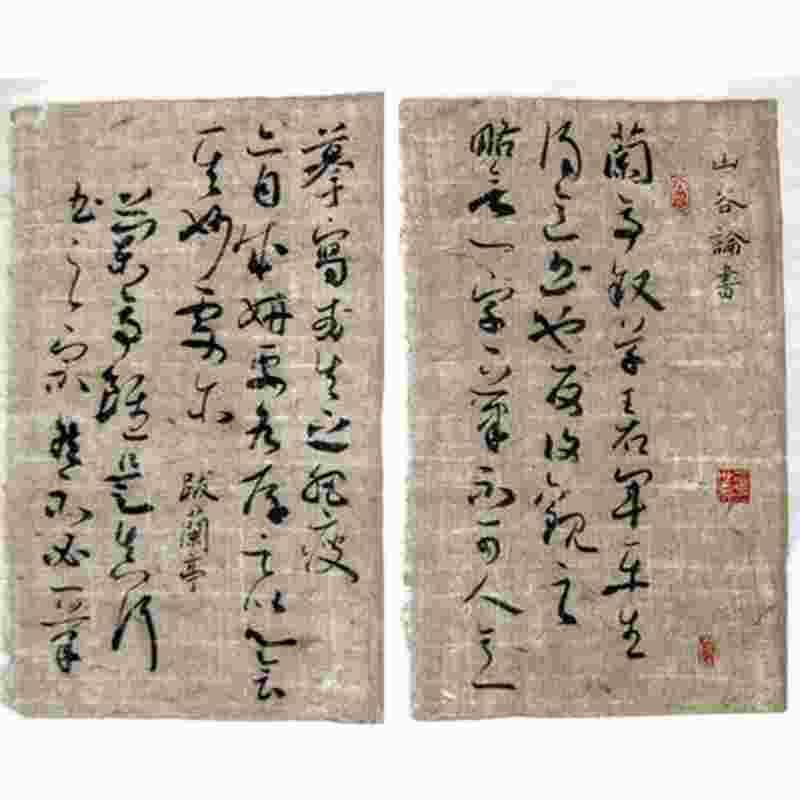 山谷論書
蘭亭敘草王右軍平生
得意書也反復觀之
略無一字一筆不可人意
摹寫或失之肥瘦
亦自成妍要各存之以心會
其妙處爾
跋蘭亭
蘭亭雖是真行
書之宗然不必一筆